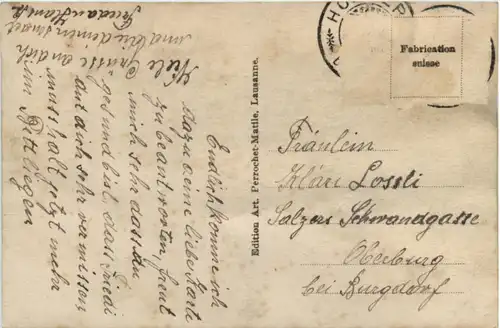 Endlich komme ich
dazu deine liebe Karte
zu beantworten, freut
mich sehr dass du
gesund bist, dass Fredi
auf dich sehr vermissen
muss halt jetzt mehr
im Bett liegen
Viele Grüsse an dich
und
Frieda
Edition Art. Perrochet-Matile, Lausanne.
Fabrication
suisse
Fräulein
Klari Lossli
Salzers Schwandgasse
Oberburg
bei Burgdorf